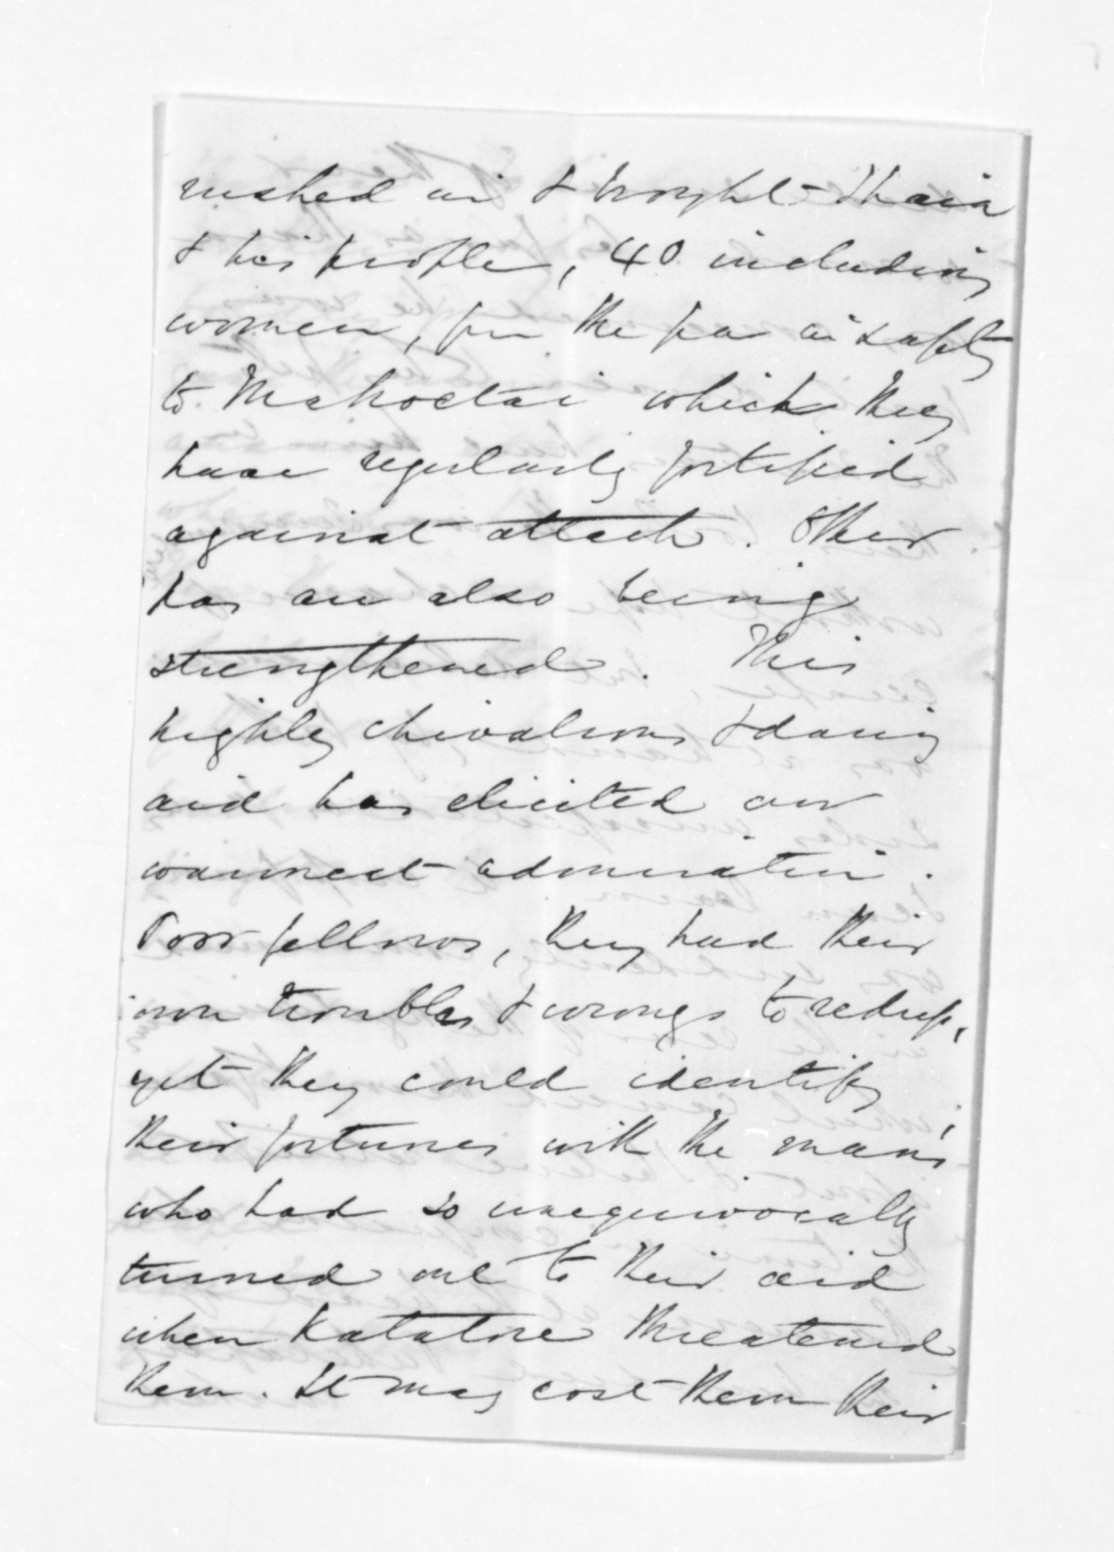 rushed in & brought Ihaia
& his people, 40 including
women, fm the pa in safety
to Mahoetai which they
have regularly fortified
against attack. Their
pas are also being
strengthened. This
highly chivalrous & daring
aid has elicited our
warmest admiration.
Poor fellows, they had their
own troubles & wrongs to redress,
yet they could identify
their fortunes with the man
who had so unequivocally
turned out to their aid
when Katatore threatened
them. It may cost them their